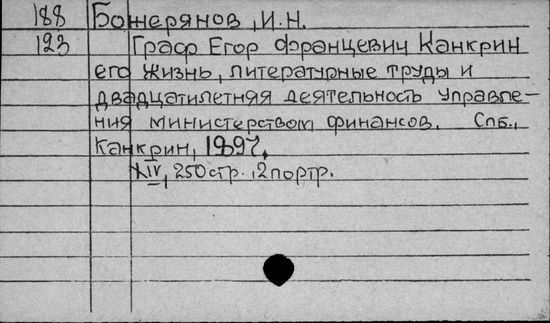 188 Божерянов, И.Н.
123 Граф Егор Францевич Канкрин
его жизнь, литературные труды и
двадцатилетняя деятельность управле-
ния министерством финансов. Спб.,
Канкрин, 1897.
XIV, 250 стр., 2 портр.